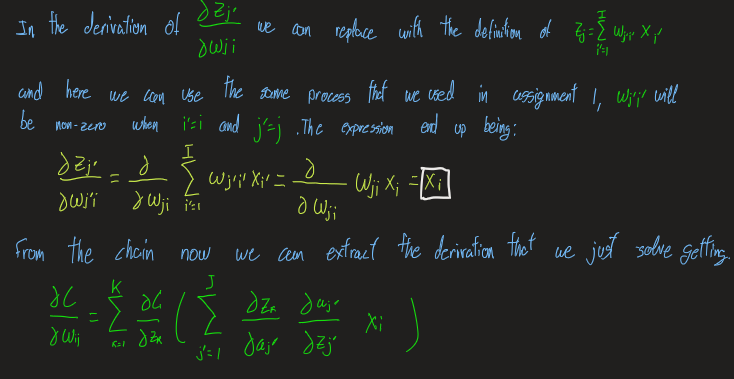 In the derivation of ∂z_{j'}/∂w_{ji} we can replace with the definition of z_j = Σ_{i'=1}^{I} w_{j'i'} x_{i'}
and here we can use the same process that we used in assignment 1, w_{j'i'} will
be non-zero when i'=i and j'=j. The expression end up being:
∂z_{j'}/∂w_{j'i} = ∂/∂w_{ji} Σ_{i'=1}^{I} w_{j'i'} x_{i'} = ∂/∂w_{ji} w_{ji} x_j = x_i
From the chain now we can extract the derivation that we just solve getting.
∂C/∂w_{ij} = Σ_{k=1}^{K} ∂C/∂z_k ( Σ_{j'=1}^{J} ∂z_k/∂a_{j'} ∂a_{j'}/∂z_{j'} x_i )